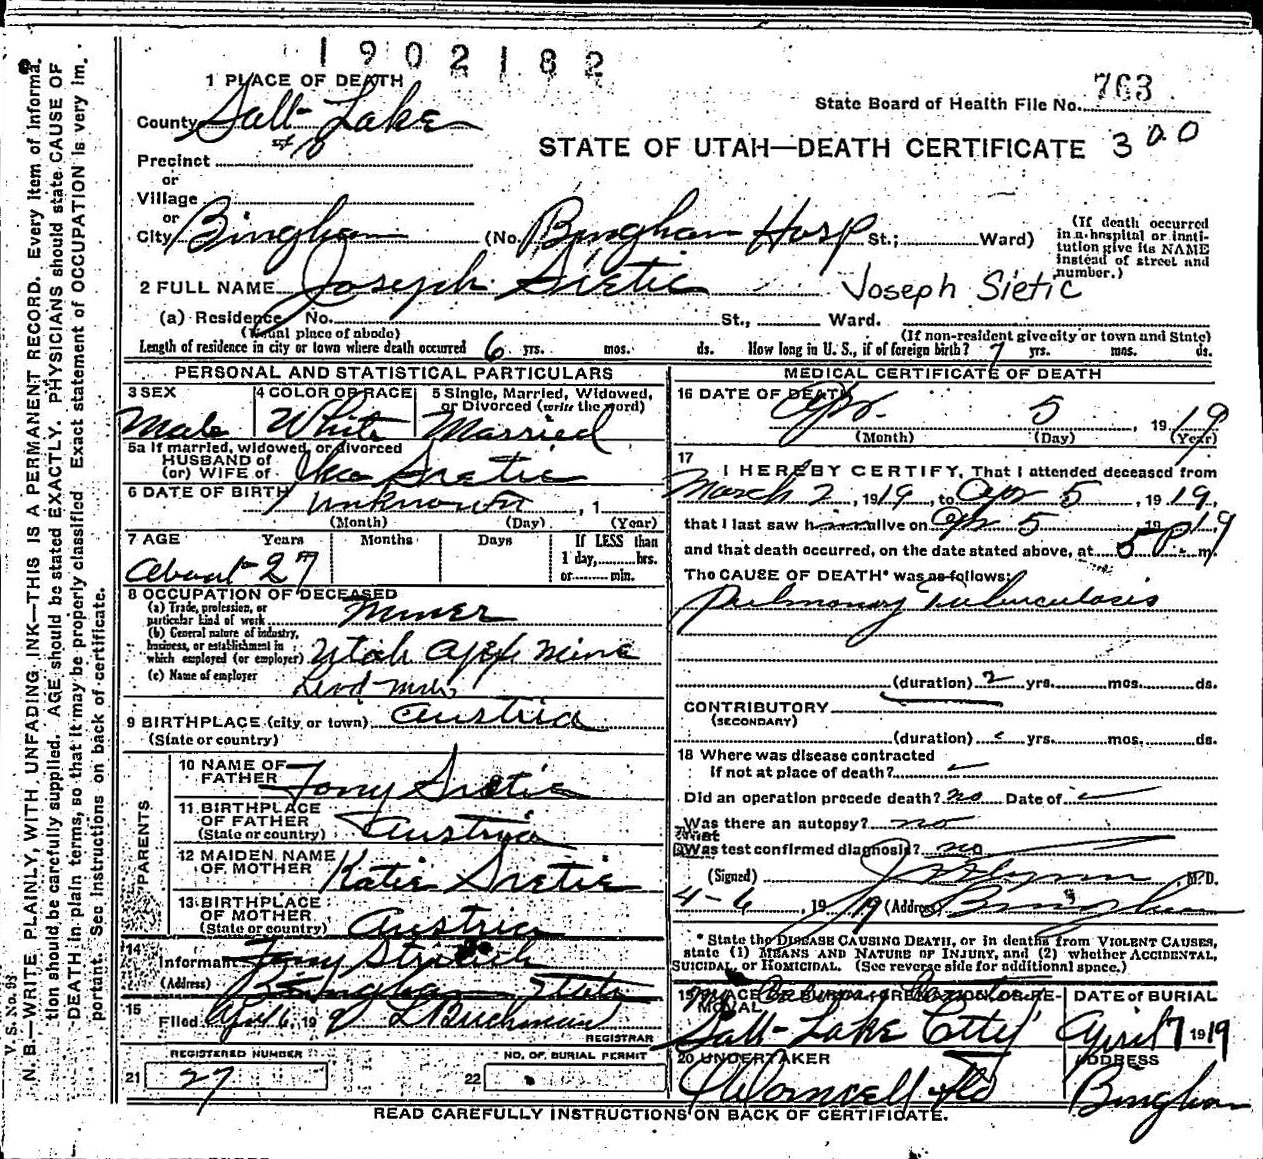 1902182
1 PLACE OF DEATH
State Board of Health File No. 763
County Salt Lake
STATE OF UTAH—DEATH CERTIFICATE 300
Precinct
or
Village
or
City Bingham (No. Bingham Hosp St.; Ward)
(If death occurred in a hospital or institution give its NAME instead of street and number.)
2 FULL NAME Joseph Sietic Joseph Sietic
(a) Residence No. St., Ward.
(Usual place of abode) (If non-resident give city or town and State)
Length of residence in city or town where death occurred 6 yrs. mos. ds. How long in U. S., if of foreign birth? 7 yrs. mos. ds.
PERSONAL AND STATISTICAL PARTICULARS
3 SEX Male
4 COLOR OR RACE White
5 Single, Married, Widowed, or Divorced (write the word) Married
5a If married, widowed, or divorced
HUSBAND of
(or) WIFE of Sietic
6 DATE OF BIRTH Unknown , 1
(Month) (Day) (Year)
7 AGE Years Months Days If LESS than
1 day, hrs.
or min.
About 27
8 OCCUPATION OF DECEASED
(a) Trade, profession, or particular kind of work Miner
(b) General nature of industry, business, or establishment in which employed (or employer) Utah Apex Mine
(c) Name of employer Lead
9 BIRTHPLACE (city or town) Austria
(State or country)
PARENTS
10 NAME OF FATHER Tony Sietic
11 BIRTHPLACE OF FATHER (State or country) Austria
12 MAIDEN NAME OF MOTHER Katie Sietic
13 BIRTHPLACE OF MOTHER (State or country) Austria
14 Informant Tony
(Address) Bingham State
15 Filed Apr 6, 19 9 L Buchman
REGISTRAR
REGISTERED NUMBER
21 27
NO. OF BURIAL PERMIT
22
MEDICAL CERTIFICATE OF DEATH
16 DATE OF DEATH Apr. 5, 1919
(Month) (Day) (Year)
17 I HEREBY CERTIFY, That I attended deceased from
March 2, 1919, to Apr 5, 1919,
that I last saw him alive on Apr 5 1919
and that death occurred, on the date stated above, at 5 P. m.
The CAUSE OF DEATH* was as follows:
Pulmonary Tuberculosis
(duration) 2 yrs. mos. ds.
CONTRIBUTORY
(SECONDARY)
(duration) yrs. mos. ds.
18 Where was disease contracted
If not at place of death?
Did an operation precede death? no Date of
Was there an autopsy? no
What
Was test confirmed diagnosis? no
(Signed) M.D.
4-6, 1919 (Address) Bingham
* State the DISEASE CAUSING DEATH, or in deaths from VIOLENT CAUSES, state (1) MEANS AND NATURE OF INJURY, and (2) whether ACCIDENTAL, SUICIDAL, or HOMICIDAL. (See reverse side for additional space.)
19 PLACE OF BURIAL, CREMATION OR REMOVAL
Salt Lake City
DATE OF BURIAL
April 7 1919
20 UNDERTAKER
ADDRESS
Bingham
READ CAREFULLY INSTRUCTIONS ON BACK OF CERTIFICATE.
V. S. No. 83
N. B.—WRITE PLAINLY, WITH UNFADING INK—THIS IS A PERMANENT RECORD. Every item of information should be carefully supplied. AGE should be stated EXACTLY. PHYSICIANS should state CAUSE OF DEATH in plain terms, so that it may be properly classified. Exact statement of OCCUPATION is very important. See instructions on back of certificate.